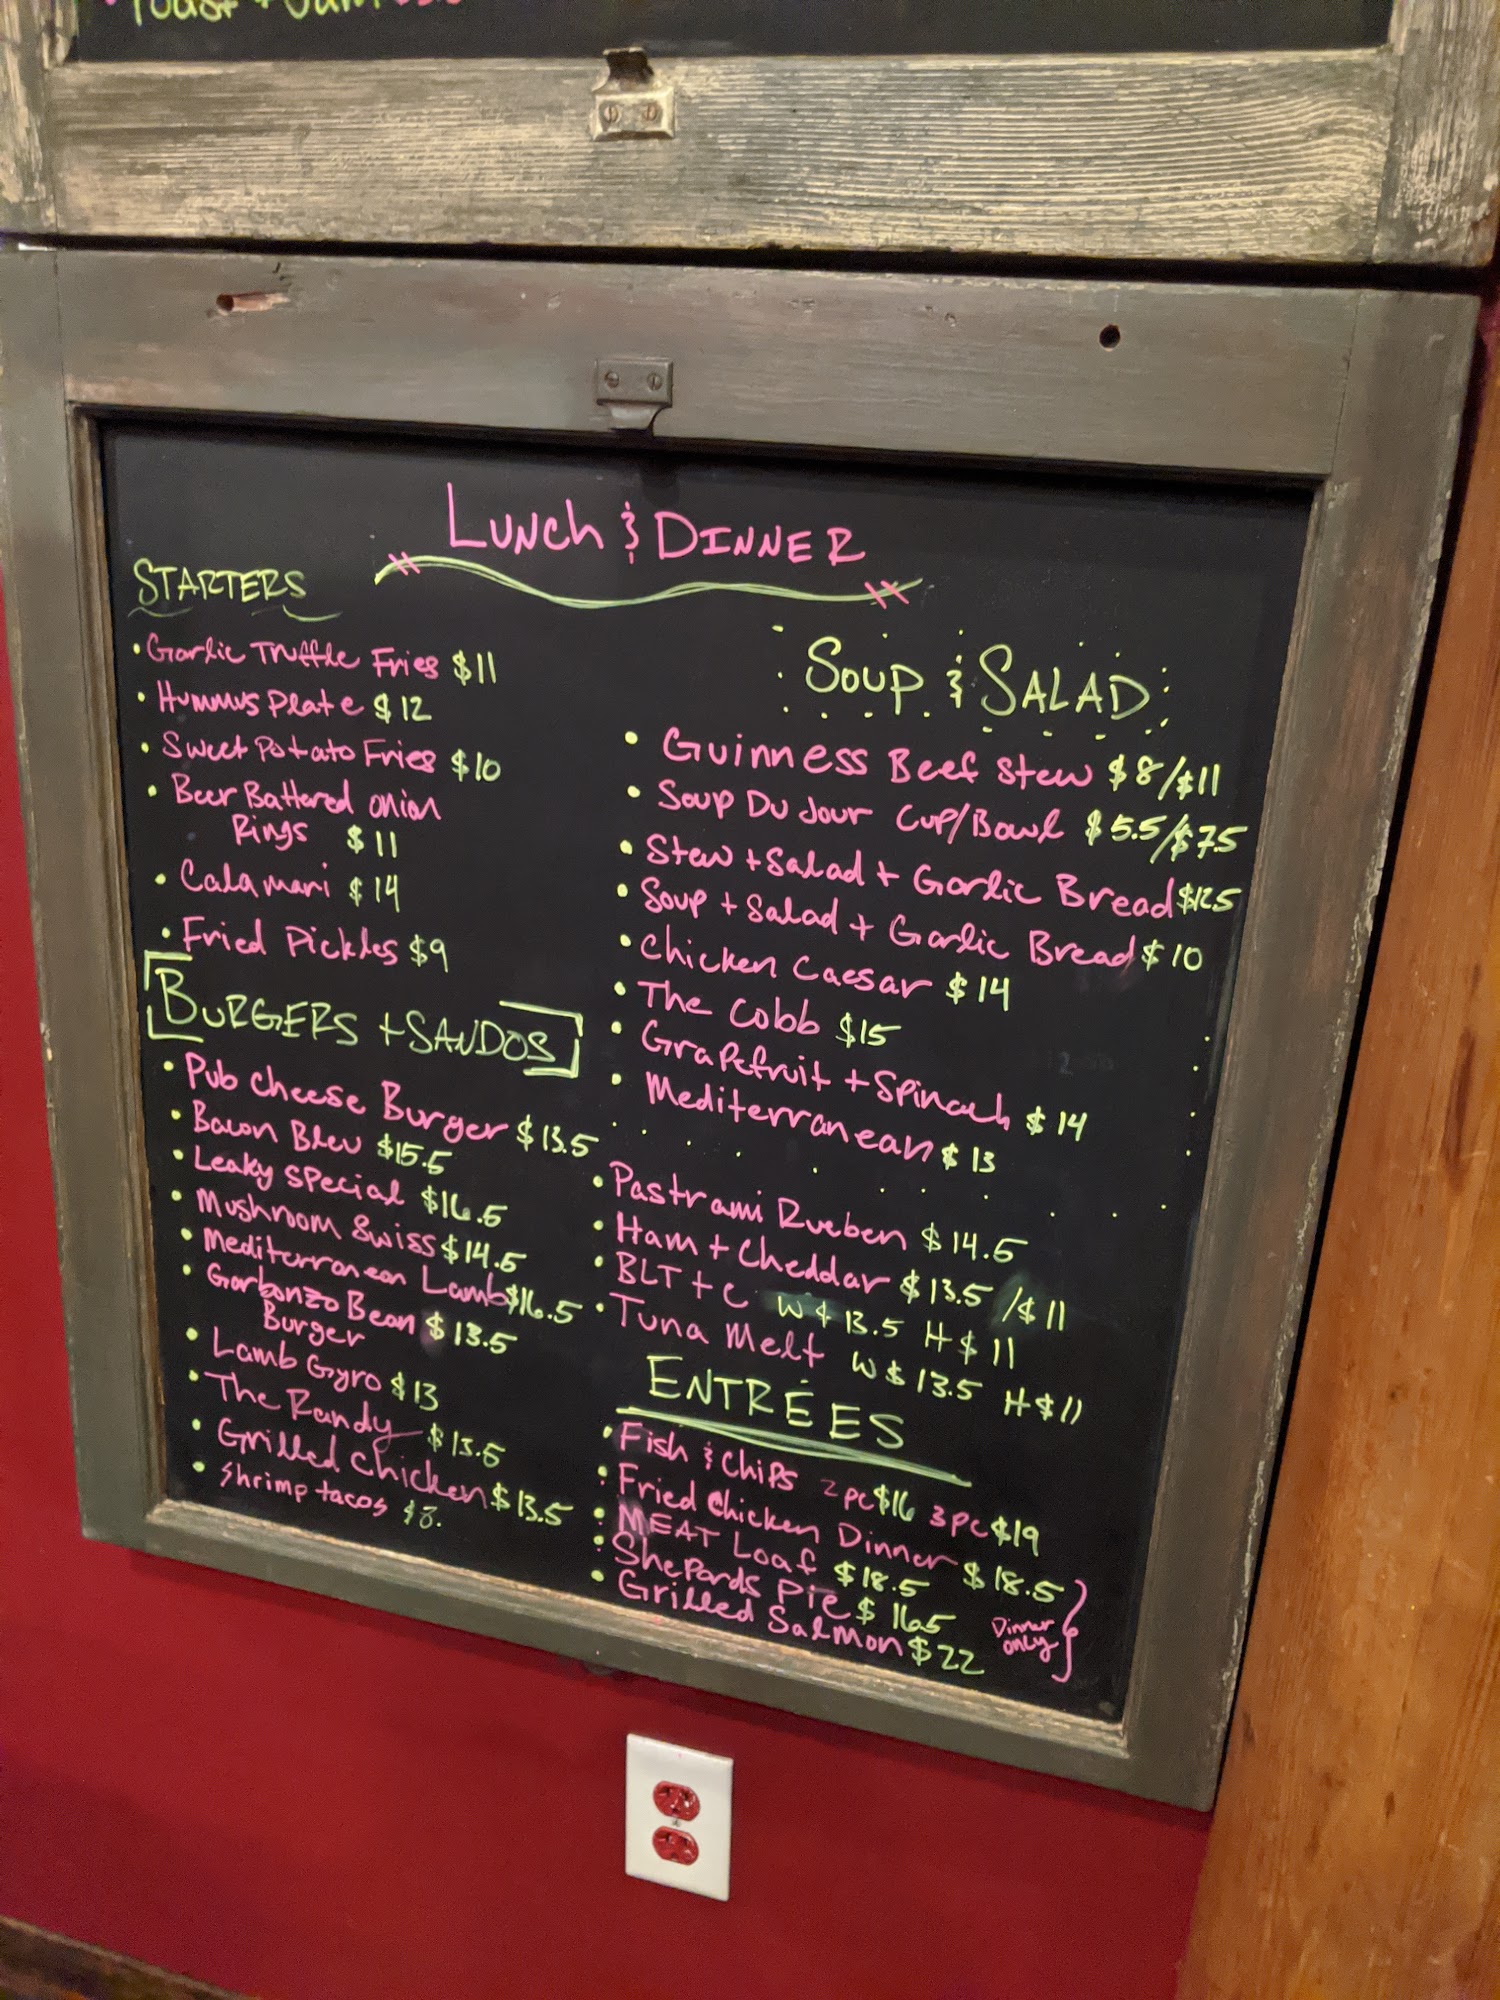 Toast + Jam
Lunch & Dinner
Starters
• Garlic Truffle Fries $11
• Hummus Plate $12
• Sweet Potato Fries $10
• Beer Battered Onion
Rings $11
• Calamari $14
• Fried Pickles $9
Burgers + Sandos
• Pub Cheese Burger $13.5
• Bacon Bleu $15.5
• Leaky Special $16.5
• Mushroom Swiss $14.5
• Mediterranean Lamb $16.5
• Garbonzo Bean $13.5
Burger
• Lamb Gyro $13
• The Randy $13.5
• Grilled Chicken $13.5
• Shrimp tacos $8.
Soup & Salad
• Guinness Beef Stew $8/$11
• Soup Du Jour Cup/Bowl $5.5/$7.5
• Stew + Salad + Garlic Bread $12.5
• Soup + Salad + Garlic Bread $10
• Chicken Caesar $14
• The Cobb $15
• Grapefruit + Spinach $14
• Mediterranean $13
• Pastrami Rueben $14.5
• Ham + Cheddar $13.5 /$11
• BLT + C W $13.5 H $11
• Tuna Melt W $13.5 H $11
Entrées
• Fish & Chips 2pc $16 3pc $19
• Fried Chicken Dinner $18.5
• Meat Loaf $18.5
• Shepards Pie $16.5
• Grilled Salmon $22
Dinner
only